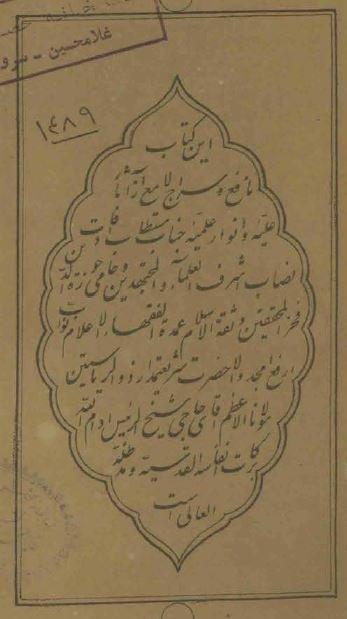 غلامحسین - سرو
۱۴۸۹
این کتاب
نافع و سراج لامع از آثار
علیّه و انوار علمیّه جناب مستطاب افادت
نصاب شرف العلماء و المجتهدین و حامی حوزة الدین
فخر المحققین و ثقة الاسلام عمدة الفقهاء الاعلام نواب
ارفع امجد والا حضرت شریعتمدار ذوالریاستین
مولانا الاعظم آقای حاجی شیخ الرئیس ادام الله
برکات انفاسه القدسیّه و مد ظله
العالی است